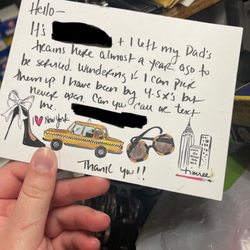 Hello-
It's + I left my Dad's
here almost a year ago to
be serviced. Wondering if I can pick
them up I have been by 4.5x's but
never open Can you call or text
me.
I ♥ New York
Thank you!!